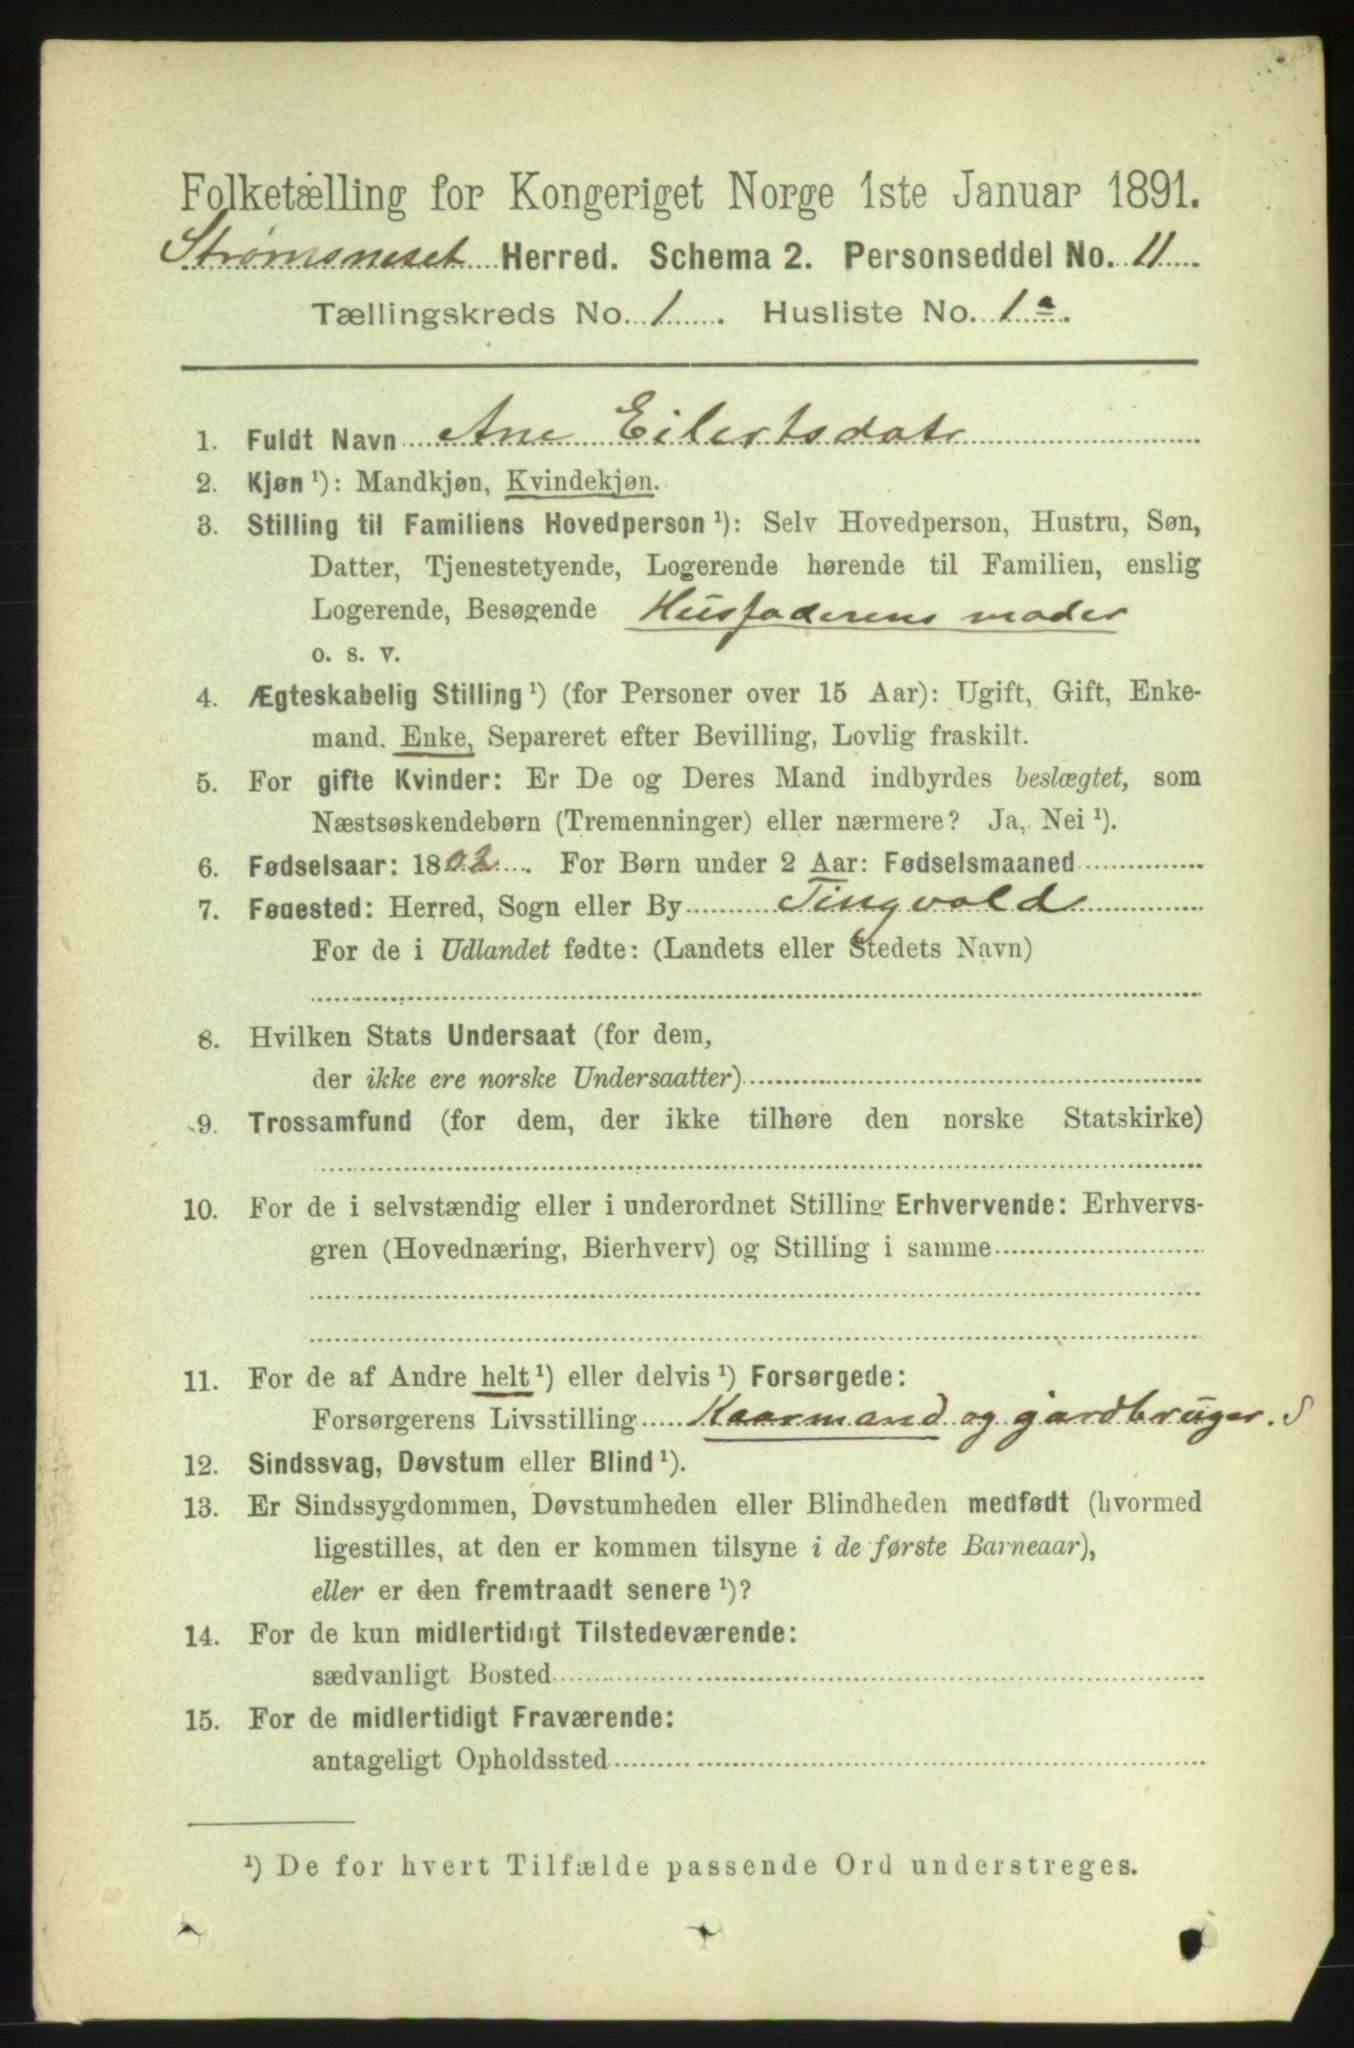 Folketælling for Kongeriget Norge 1ste Januar 1891.
Strømsneset Herred. Schema 2. Personseddel No. 11
Tællingskreds No. 1. Husliste No. 1a.
1. Fuldt Navn Ane Eilertsdatr
2. Kjøn ¹): Mandkjøn, Kvindekjøn.
3. Stilling til Familiens Hovedperson ¹): Selv Hovedperson, Hustru, Søn,
Datter, Tjenestetyende, Logerende hørende til Familien, enslig
Logerende, Besøgende Husfaderens moder
o. s. v.
4. Ægteskabelig Stilling ¹) (for Personer over 15 Aar): Ugift, Gift, Enke-
mand. Enke, Separeret efter Bevilling, Lovlig fraskilt.
5. For gifte Kvinder: Er De og Deres Mand indbyrdes beslægtet, som
Næstsøskendebørn (Tremenninger) eller nærmere? Ja, Nei ¹).
6. Fødselsaar: 1802. For Børn under 2 Aar: Fødselsmaaned
7. Føaested: Herred, Sogn eller By Tingvold
For de i Udlandet fødte: (Landets eller Stedets Navn)
8. Hvilken Stats Undersaat (for dem,
der ikke ere norske Undersaatter)
9. Trossamfund (for dem, der ikke tilhøre den norske Statskirke)
10. For de i selvstændig eller i underordnet Stilling Erhvervende: Erhvervs-
gren (Hovednæring, Bierhverv) og Stilling i samme
11. For de af Andre helt ¹) eller delvis ¹) Forsørgede:
Forsørgerens Livsstilling Kaarmand og gardbruger. S
12. Sindssvag, Døvstum eller Blind ¹).
13. Er Sindssygdommen, Døvstumheden eller Blindheden medfødt (hvormed
ligestilles, at den er kommen tilsyne i de første Barneaar),
eller er den fremtraadt senere ¹)?
14. For de kun midlertidigt Tilstedeværende:
sædvanligt Bosted
15. For de midlertidigt Fraværende:
antageligt Opholdssted
¹) De for hvert Tilfælde passende Ord understreges.